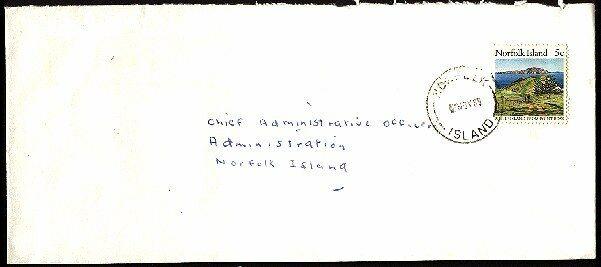 Norfolk Island 5c
NORFOLK
ISLAND
Chief Administrative Officer
Administration
Norfolk Island